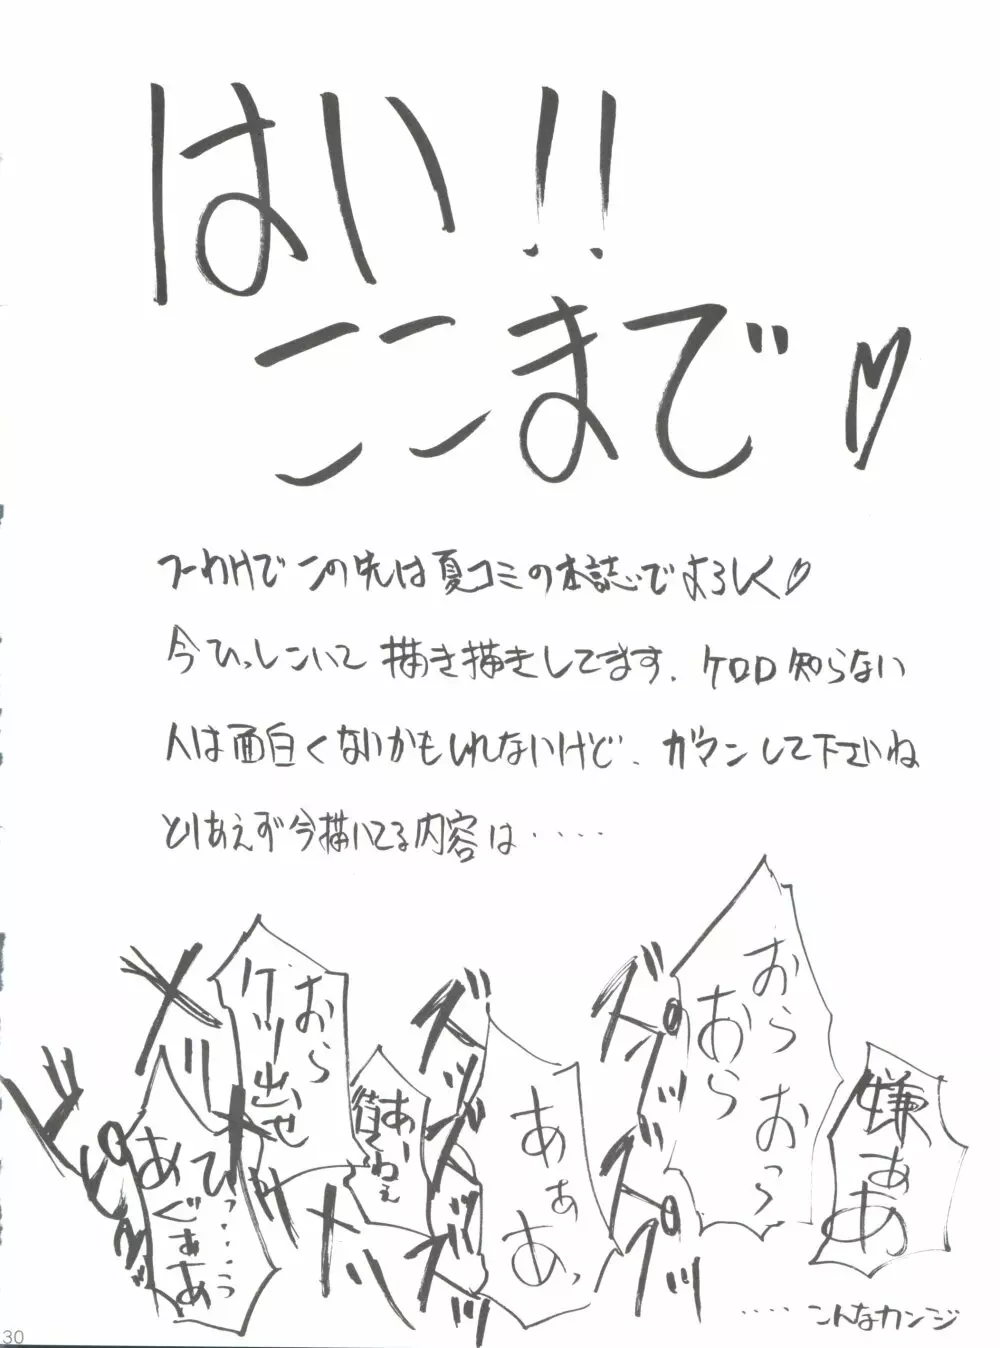 はい!!
ここまで♡
つーわけでこの先は夏コミの本誌でよろしく♡
今ひっしこいて描き描きしてます.ケロロ知らない
人は面白くないかもしれないけど.ガマンして下さいね
とりあえず今描いてる内容は‥‥‥
嫌ぁあ
おらおっ
おら
ズプッ
ズプッ
あぁあっ
ズッ
ズッ
おら
ケツ出せ
ひっ‥‥‥うっ
あぐぁぁあ
‥‥こんなカンジ
30